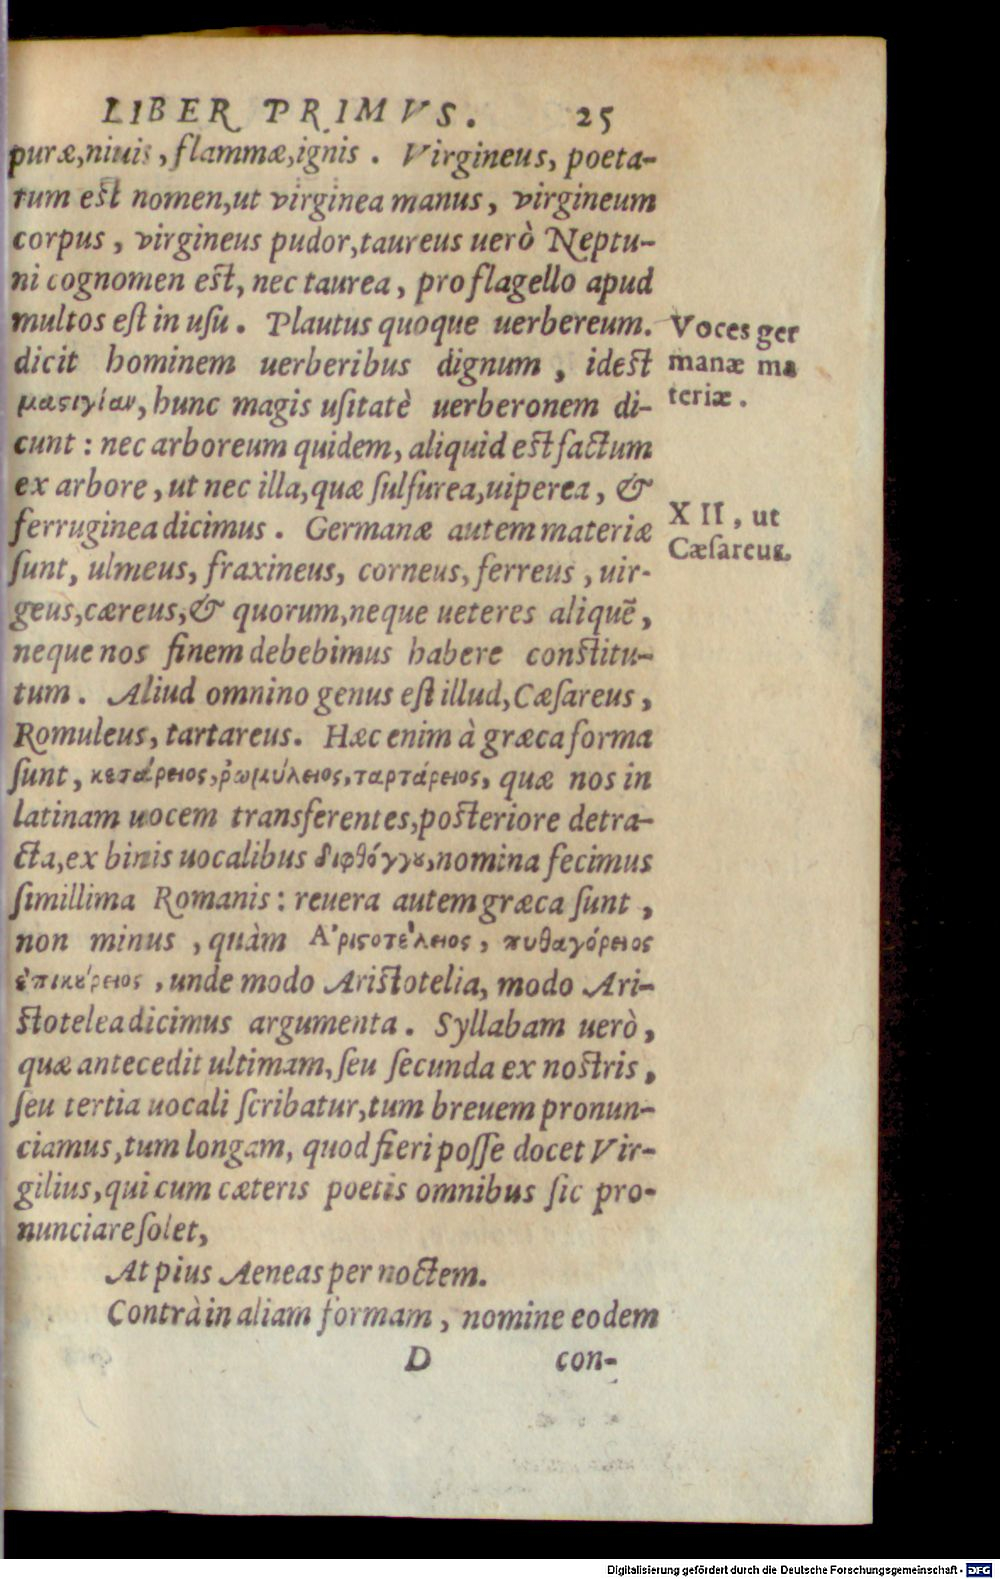 LIBER PRIMVS. 25
puræ,niuis, flammæ,ignis. Virgineus, poeta-
rum est nomen,ut virginea manus, virgineum
corpus, virgineus pudor,taureus uerò Neptu-
ni cognomen est, nec taurea, pro flagello apud
multos est in usu. Plautus quoque uerbereum.
dicit hominem uerberibus dignum, idest
μαςιγίαν, hunc magis usitatè uerberonem di-
cunt: nec arboreum quidem, aliquid est factum
ex arbore, ut nec illa,quæ sulfurea,uiperea, &
ferruginea dicimus. Germanæ autem materiæ
sunt, ulmeus, fraxineus, corneus, ferreus, uir-
geus,cæreus,& quorum,neque ueteres aliquē,
neque nos finem debebimus habere constitu-
tum. Aliud omnino genus est illud,Cæsareus,
Romuleus, tartareus. Hæc enim à græca forma
sunt, κεσάρειος,ῥωμύλειος,ταρτάρειος, quæ nos in
latinam uocem transferentes,posteriore detra-
cta,ex binis uocalibus διφθόγγȣ,nomina fecimus
simillima Romanis: reuera autem græca sunt,
non minus, quàm Ἀριςοτέλειος, πυθαγόρειος
ἐπικȣ́ρειος, unde modo Aristotelia, modo Ari-
stotelea dicimus argumenta. Syllabam uerò,
quæ antecedit ultimam, seu secunda ex nostris,
seu tertia uocali scribatur,tum breuem pronun-
ciamus,tum longam, quod fieri posse docet Vir-
gilius,qui cum cæteris poetis omnibus sic pro-
nunciare solet,
At pius Aeneas per noctem.
Contrà in aliam formam, nomine eodem
D con-
Voces ger
manæ ma
teriæ.
XII, ut
Cæsareus.
Digitalisierung gefördert durch die Deutsche Forschungsgemeinschaft - DFG